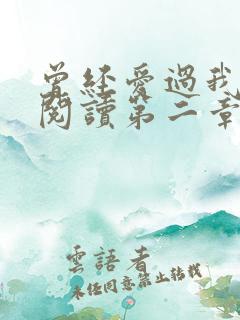 曾經愛過我
閱讀第二章
雲語者
未經同意禁止轉載